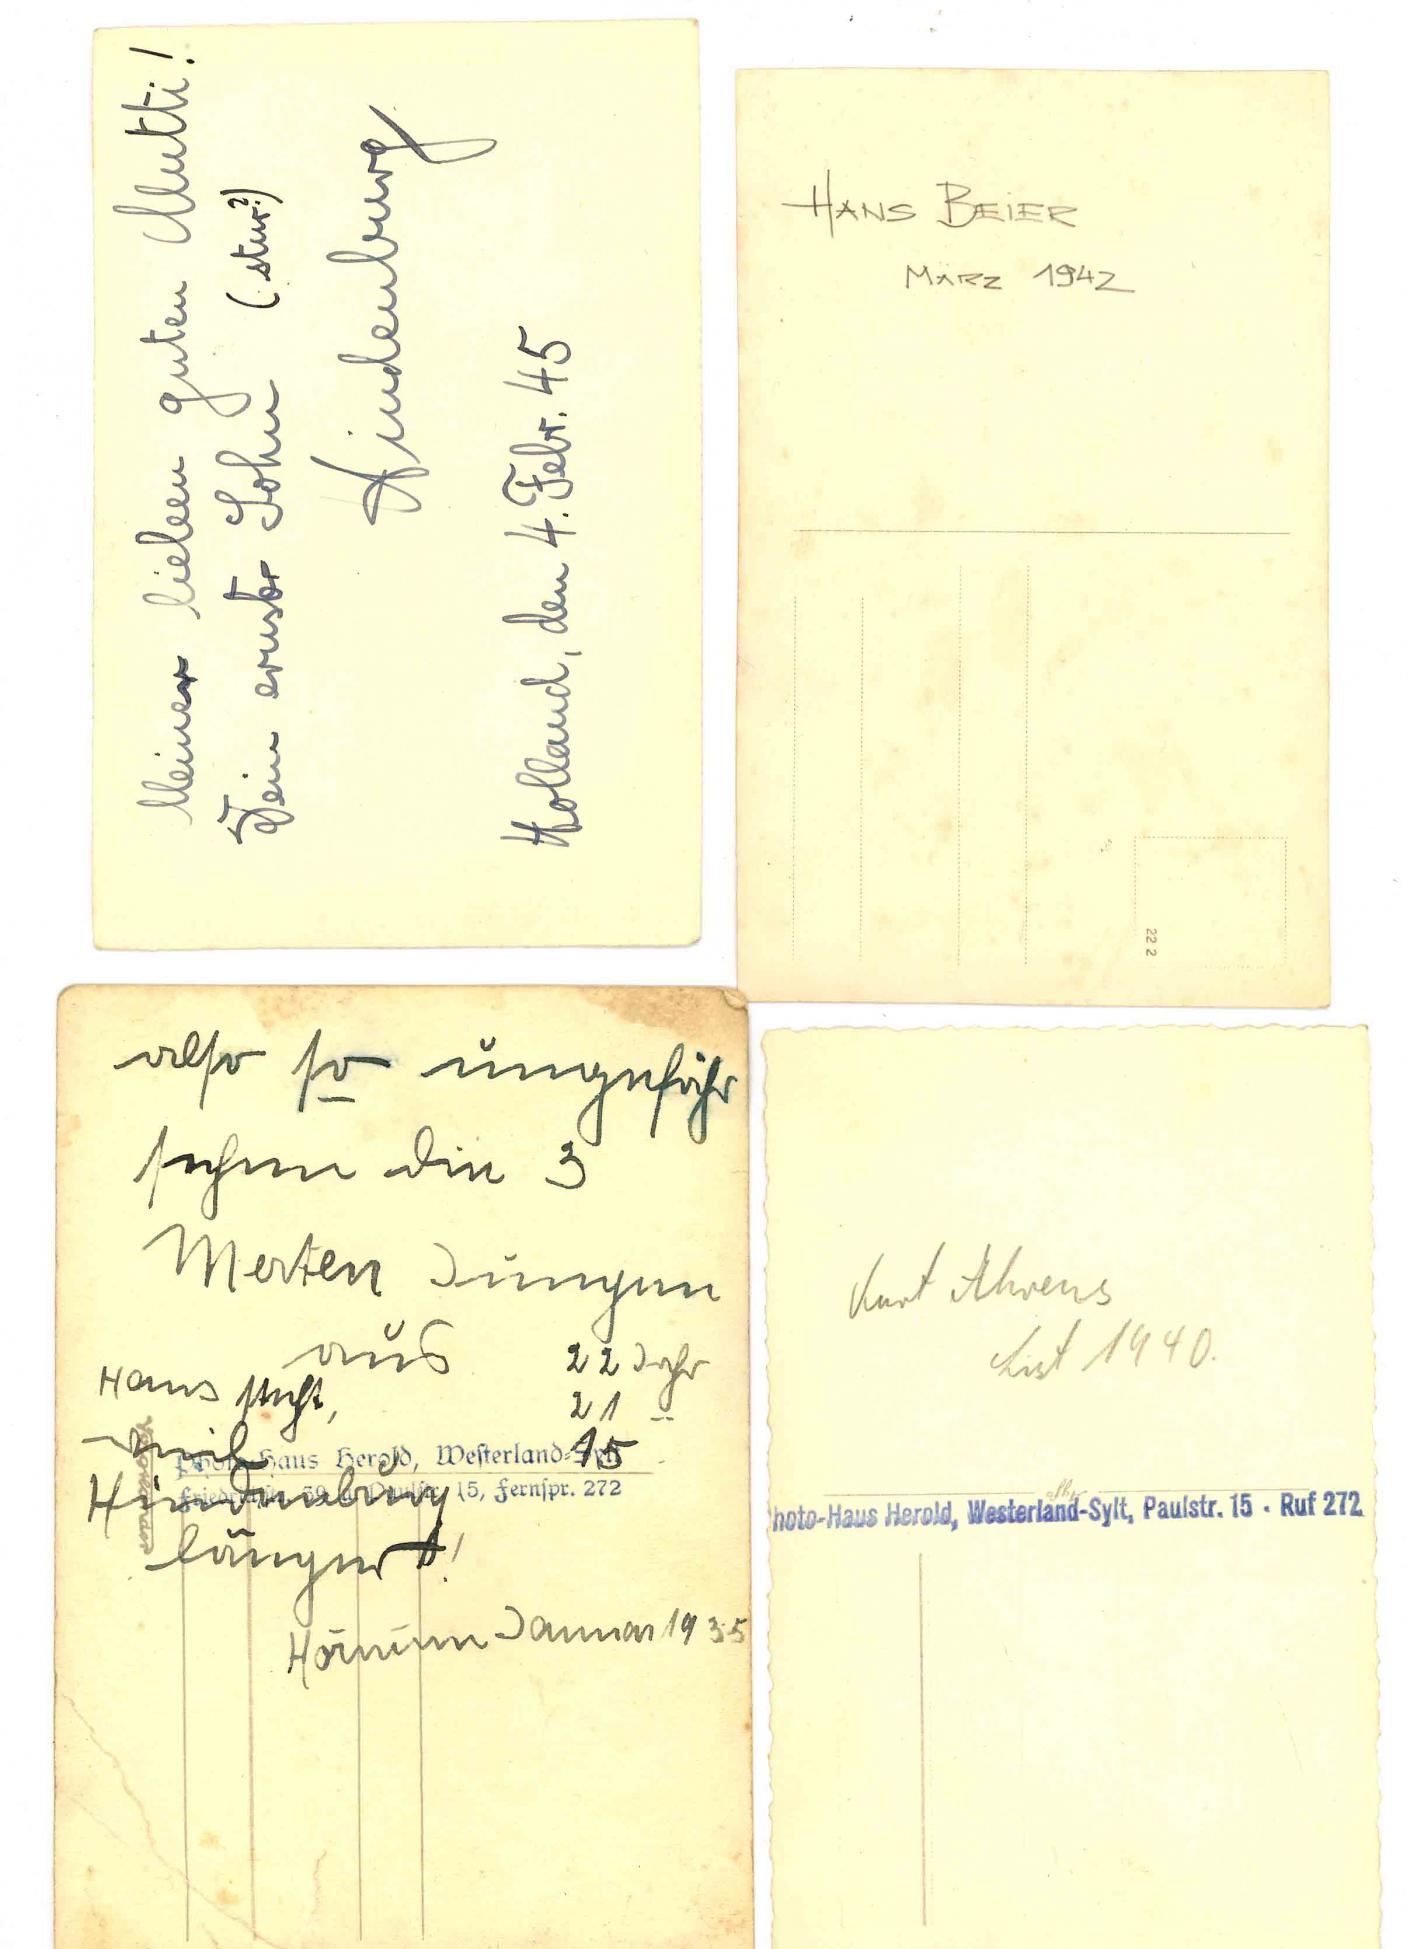 Meiner lieben guten Mutti!
Dein ernster Sohn (stur?)
Hindenburg
Holland, den 4. Febr. 45
HANS BEIER
MÄRZ 1942
22 2
also so ungefähr
sehen die 3
Merten Jungen
aus 22 Jahr
Hans steht, 21 "
Emil 15
Photo-Haus Herold, Westerland-Sylt
Friedrichstr. 59 u. Paulstr. 15, Fernspr. 272
Hindenburg
länger!
Hörnum Januar 1935
Kurt Ahrens
List 1940.
Photo-Haus Herold, Westerland-Sylt, Paulstr. 15 · Ruf 272